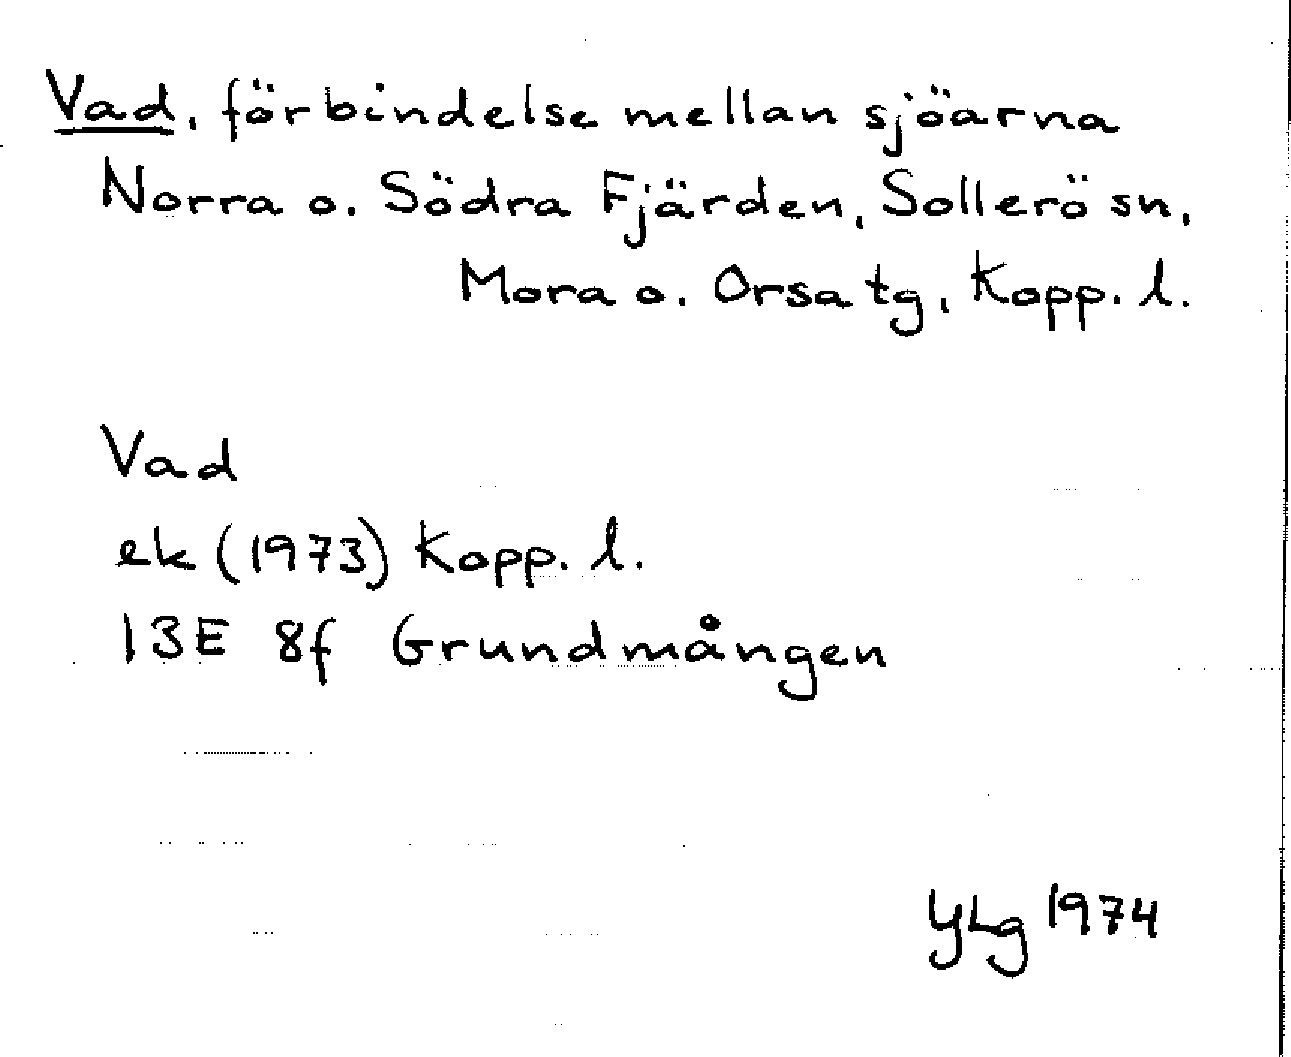 Vad, förbindelse mellan sjöarna
Norra o. Södra Fjärden, Sollerö sn,
Mora o. Orsa tg, Kopp. l.
Vad
ek (1973) Kopp. l.
13E 8f Grundmången
YLg 1974